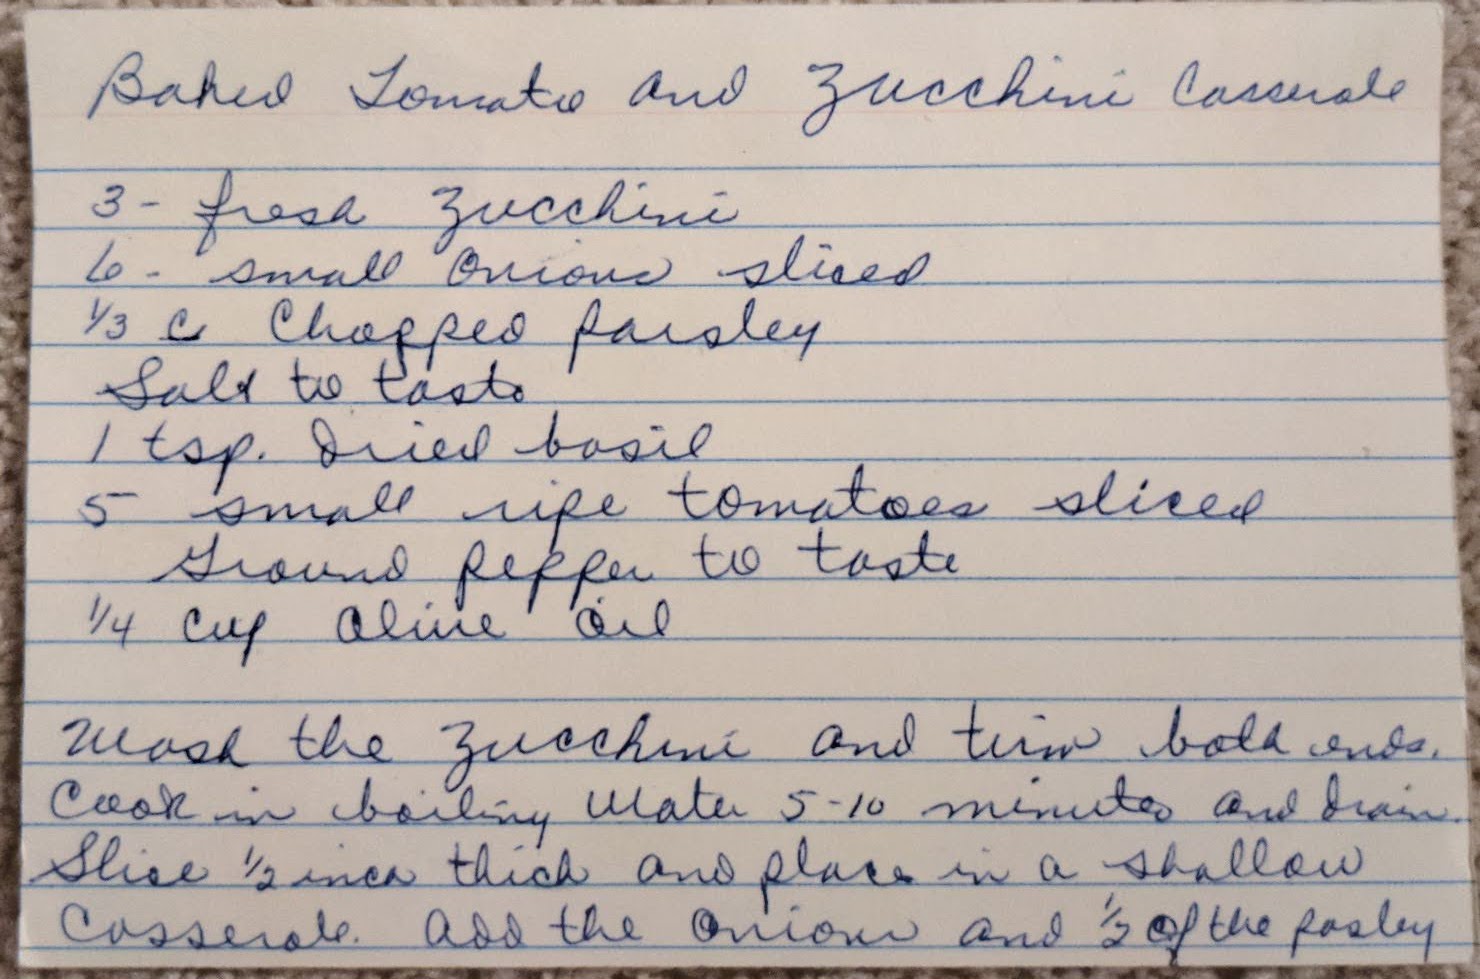 Baked Tomato and Zucchini Casserole
3 - fresh Zucchini
6 - small Onions sliced
1/3 C Chopped parsley
Salt to taste
1 tsp. Dried basil
5 small ripe tomatoes sliced
Ground pepper to taste
1/4 Cup Olive Oil
Wash the Zucchini and trim both ends.
Cook in boiling Water 5-10 minutes and drain.
Slice 1/2 inch thick and place in a shallow
Casserole. Add the Onions and 1/2 of the pasley